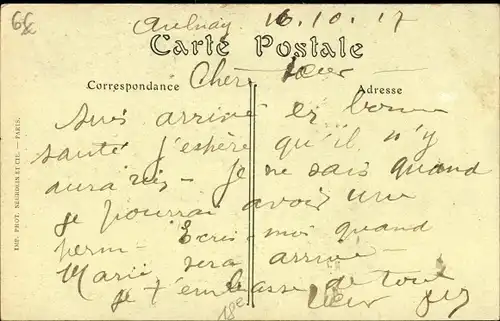 65
Aulnay 16.10.17
Carte Postale
Correspondance
Adresse
Cher
suis arrivé en bonne
santé j'espère qu'il n'y
aura je ne sais quand
je pourrai avoir une
perm - Ecris-moi quand
Marie sera arrivé
je t'embrasse de tout
cœur
18e
IMP. PHOT. NEURDEIN ET CIE. — PARIS.